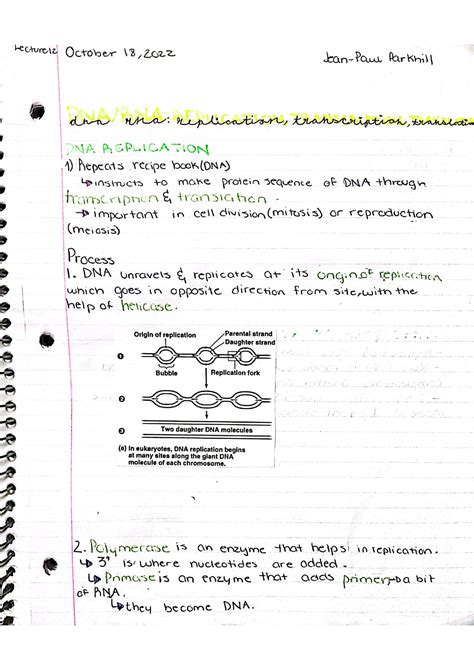 Lecture12 October 18, 2022 Jean-Paul Parkhill
DNA/RNA: REPLICATION, TRANSCRIPTION,
dna rna: replication, transcription, translation
DNA REPLICATION
1) Repeats recipe book(DNA)
↳instructs to make protein sequence of DNA through
transcription & translation.
→ important in cell division(mitosis) or reproduction
(meiosis)
Process
1. DNA unravels & replicates at its origin of replication
which goes in opposite direction from site, with the
help of helicase.
Origin of replication Parental strand
Daughter strand
1
Bubble Replication fork
2
3 Two daughter DNA molecules
(a) In eukaryotes, DNA replication begins
at many sites along the giant DNA
molecule of each chromosome.
2. Polymerase is an enzyme that helps in replication.
↳ 3' is where nucleotides are added.
↳ Primase is an enzyme that adds primer→a bit
of RNA.
↳they become DNA.